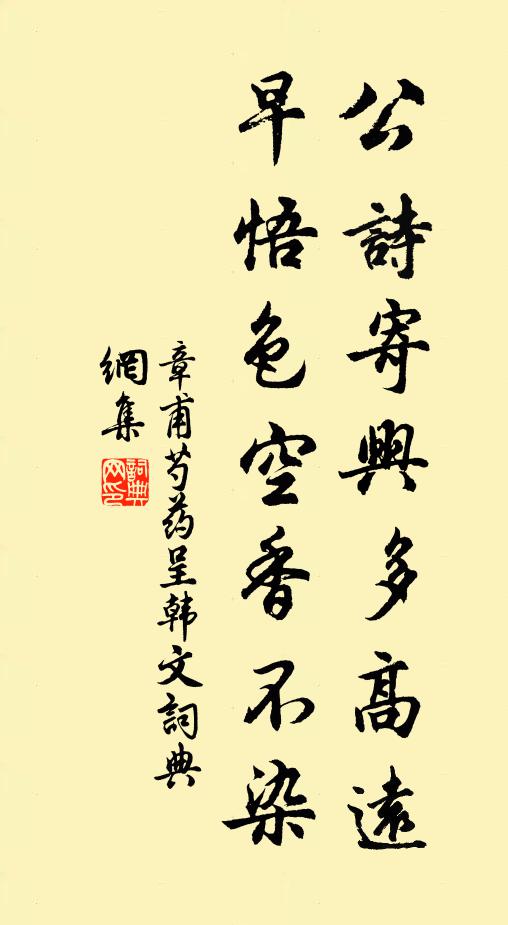 公詩寄興多高遠
早悟色空香不染
章甫芍药呈韩文詞典
網集
詞典网印